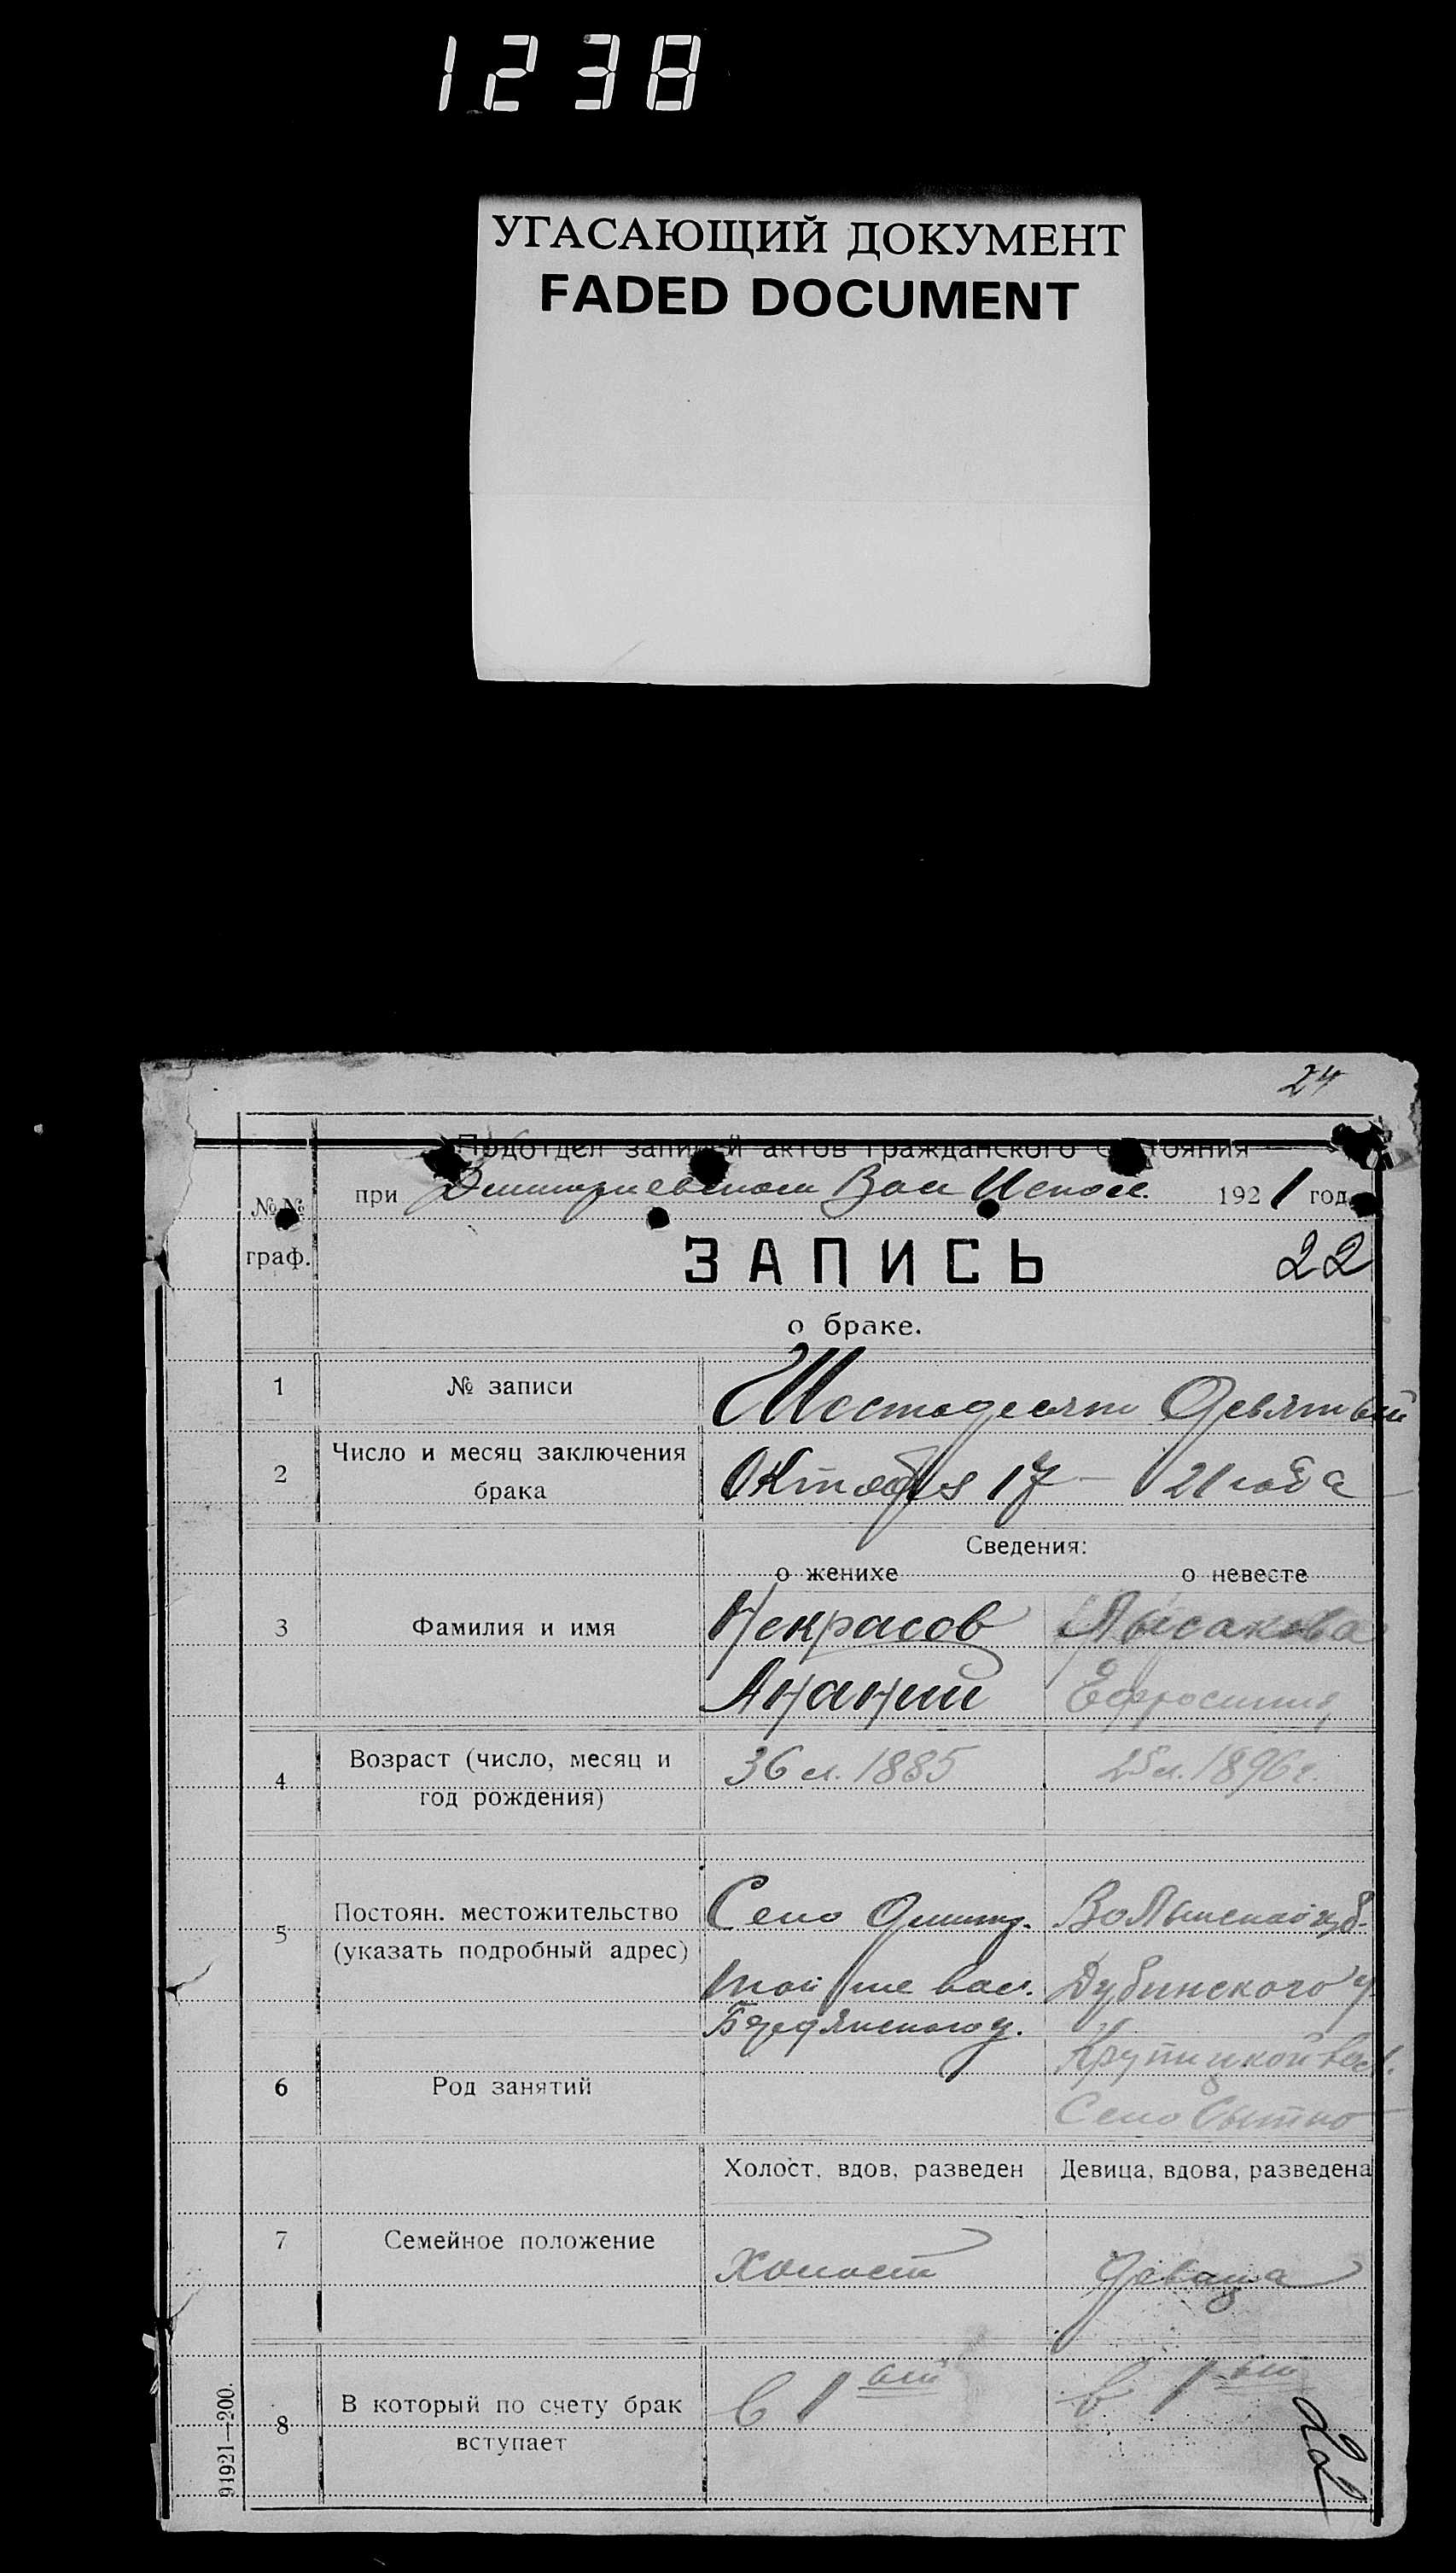 1238
УГАСАЮЩИЙ ДОКУМЕНТ
FADED DOCUMENT
24
Подотдел записей актов гражданского состояния
№№ граф.
при Дмитриевском Вол Исполк. 1921 год
ЗАПИСЬ 22
о браке.
1 № записи Шестьдесят Девятый
2 Число и месяц заключения брака Октября 17 – 21 года
Сведения:
о женихе о невесте
3 Фамилия и имя Некрасов Лысакова
Ананий Ефросиния
4 Возраст (число, месяц и год рождения) 36 л. 1885 25 л. 1896 г.
5 Постоян. местожительство (указать подробный адрес)
Село Дмитр. Волынской губ.
той же вол. Дубинского у
Бердянского у. Крупицкой вол.
6 Род занятий Село Сытно
Холост, вдов, разведен Девица, вдова, разведена
7 Семейное положение Холост Девица
8 В который по счету брак вступает в 1ый в 1ый
22
91921—200.